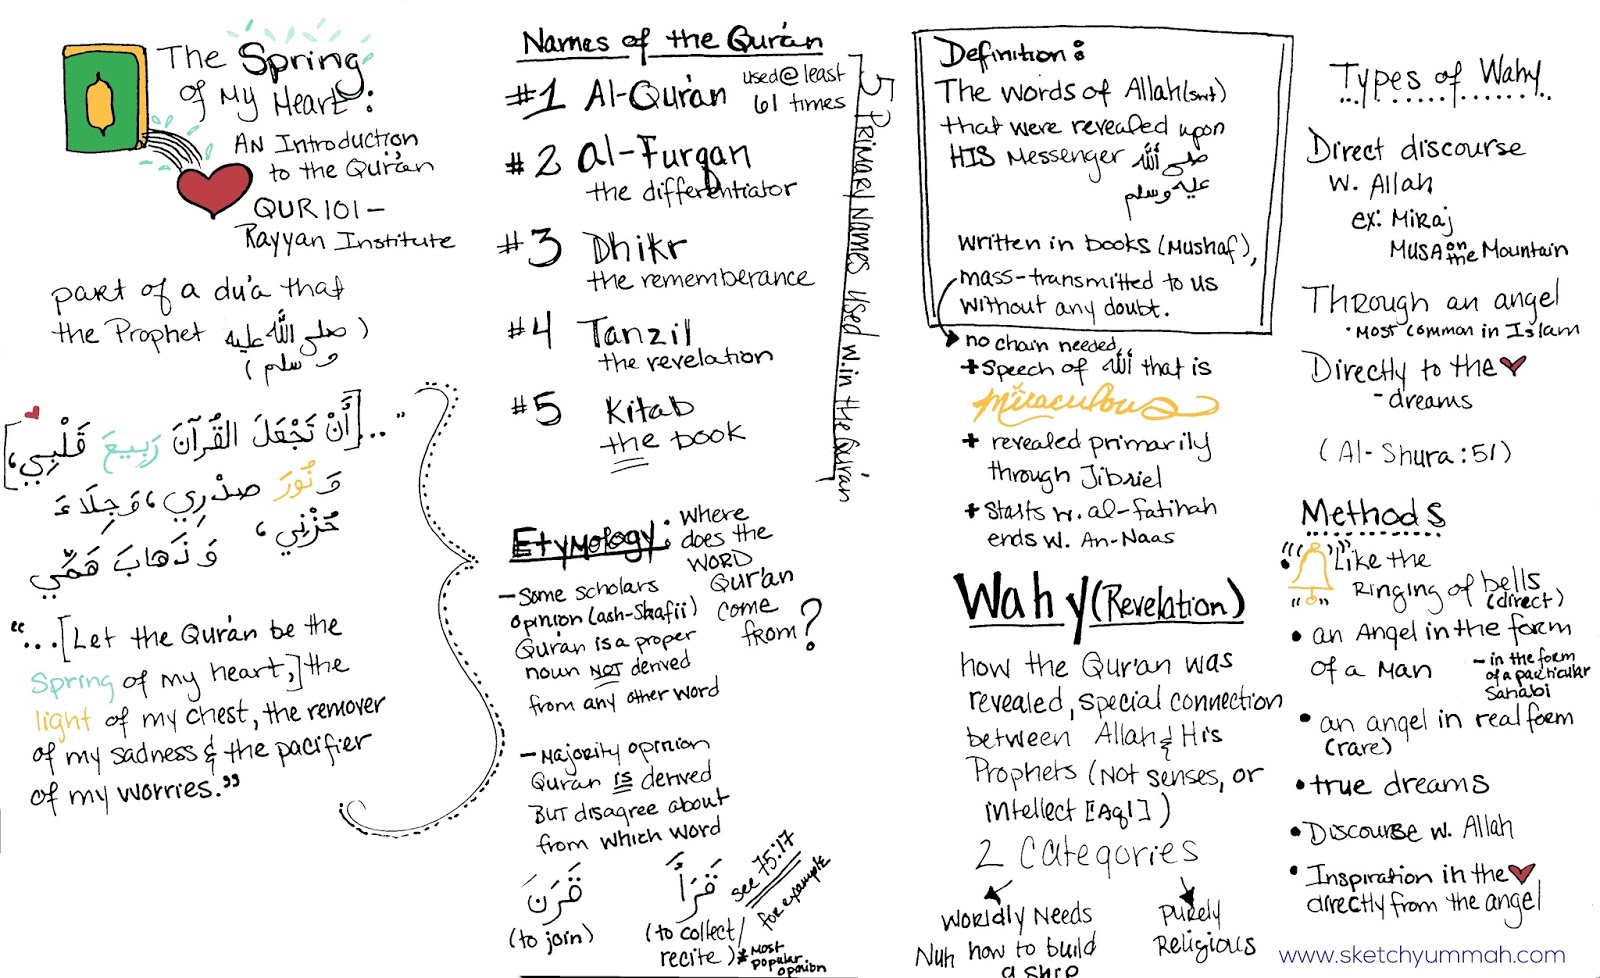 The Spring
of My Heart:
AN Introduction
to the Qur'an
QUR 101 -
Rayyan Institute
part of a du'a that
the Prophet (صلى الله عليه
وسلم)
"...[أَنْ تَجْعَلَ القُرْآنَ رَبِيعَ قَلْبِي،]
وَنُورَ صَدْرِي، وَجِلَاءَ
حُزْنِي، وَذَهَابَ هَمِّي
"...[Let the Qur'an be the
Spring of my heart,] the
light of my chest, the remover
of my sadness & the pacifier
of my worries."
Names of the Qur'an
#1 Al-Qur'an used @ least
61 times
#2 al-Furqan
the differentiator
#3 Dhikr
the rememberance
#4 Tanzil
the revelation
#5 Kitab
the book
5 Primary Names used w.in the Qur'an
Etymology: Where
does the
WORD
Qur'an
come
from?
- Some scholars
opinion (ash-Shafii)
Qur'an is a proper
noun NOT derived
from any other word
- Majority opinion
Quran IS derived
BUT disagree about
from which word
قَرَنَ
(to join)
قَرَأَ
(to collect/
recite) * Most
popular
opinion
see 75:17
for example
Definition:
The words of Allah (swt)
that were revealed upon
HIS Messenger صلى الله
عليه وسلم
written in books (Mushaf),
mass-transmitted to us
without any doubt.
no chain needed
+ Speech of الله that is
miraculous
+ revealed primarily
through Jibriel
+ starts w. al-fatihah
ends w. An-Naas
Wahy (Revelation)
how the Qur'an was
revealed, special connection
between Allah & His
Prophets (Not senses, or
intellect [Aql])
2 Categories
Worldly Needs
Nuh how to build
a ship
Purely
Religious
Types of Wahy
Direct discourse
w. Allah
ex: Miraj
MUSA on the Mountain
Through an angel
• Most common in Islam
Directly to the ♥
- dreams
(Al-Shura: 51)
Methods
• Like the
Ringing of bells
(direct)
• an Angel in the form
of a Man - in the form
of a particular
Sahabi
• an angel in real form
(rare)
• true dreams
• Discourse w. Allah
• Inspiration in the ♥
directly from the angel
www.sketchyummah.com